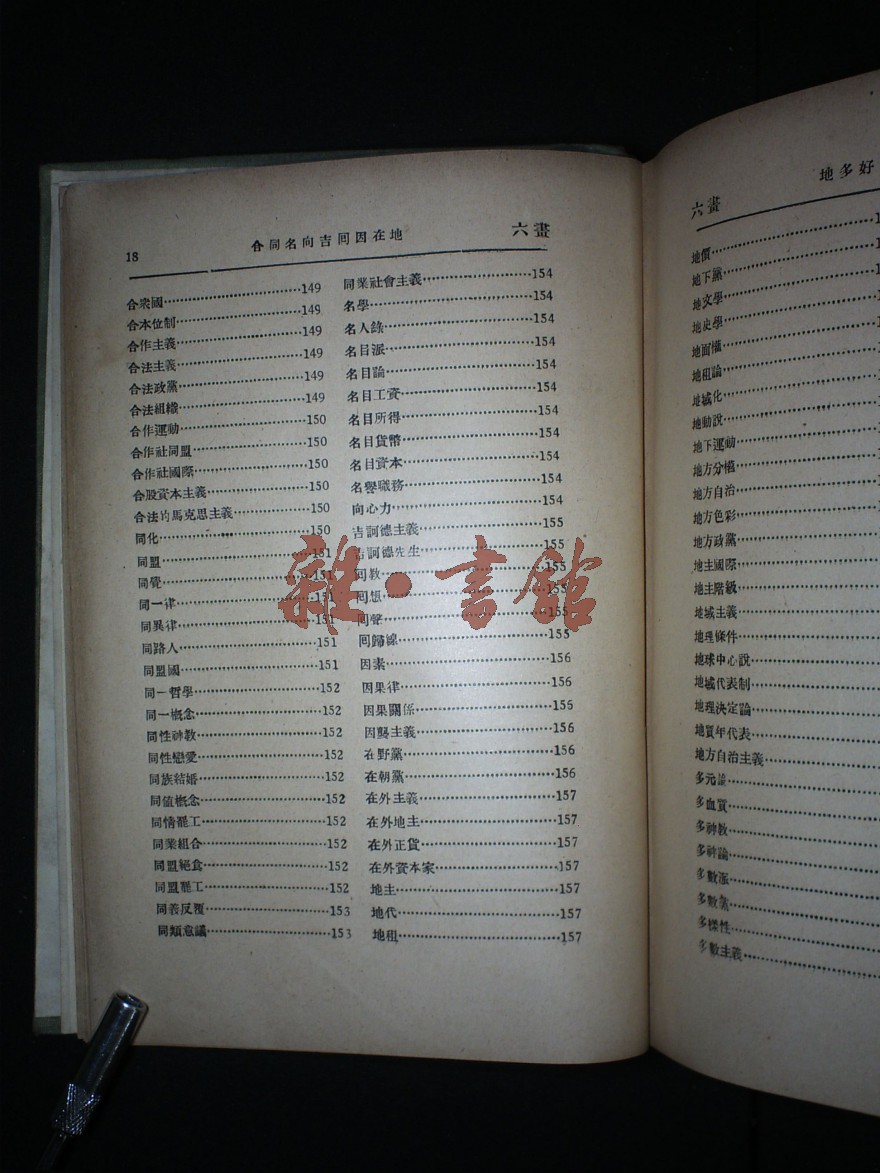 18
合同名向吉囘因在地
六畫
合衆國 149
合本位制 149
合作主義 149
合法主義 149
合法政黨 149
合法組織 149
合作運動 150
合作社同盟 150
合作社國際 150
合股資本主義 150
合法的馬克思主義 150
同化 150
同盟 151
同覺 151
同一律 151
同異律 151
同路人 151
同盟國 151
同一哲學 152
同一概念 152
同性神教 152
同性戀愛 152
同族結婚 152
同値概念 152
同情罷工 152
同業組合 152
同盟絕食 152
同盟罷工 152
同義反覆 153
同類意識 153
同業社會主義 154
名學 154
名人錄 154
名目派 154
名目論 154
名目工資 154
名目所得 154
名目貨幣 154
名目資本 154
名譽職務 154
向心力 154
吉訶德主義 155
吉訶德先生 155
囘教 155
囘想 155
囘聲 155
囘歸線 155
因素 156
因果律 156
因果關係 156
因襲主義 156
在野黨 156
在朝黨 156
在外主義 157
在外地主 157
在外正貨 157
在外資本家 157
地主 157
地代 157
地租 157
雜·書館
六畫
地多好
地價
地下黨
地文學
地史學
地面權
地租論
地域化
地動說
地下運動
地方分權
地方自治
地方色彩
地方政黨
地主國際
地主階級
地域主義
地理條件
地球中心說
地域代表制
地理決定論
地質年代表
地方自治主義
多元論
多血質
多神教
多神論
多數派
多數黨
多樣性
多數主義